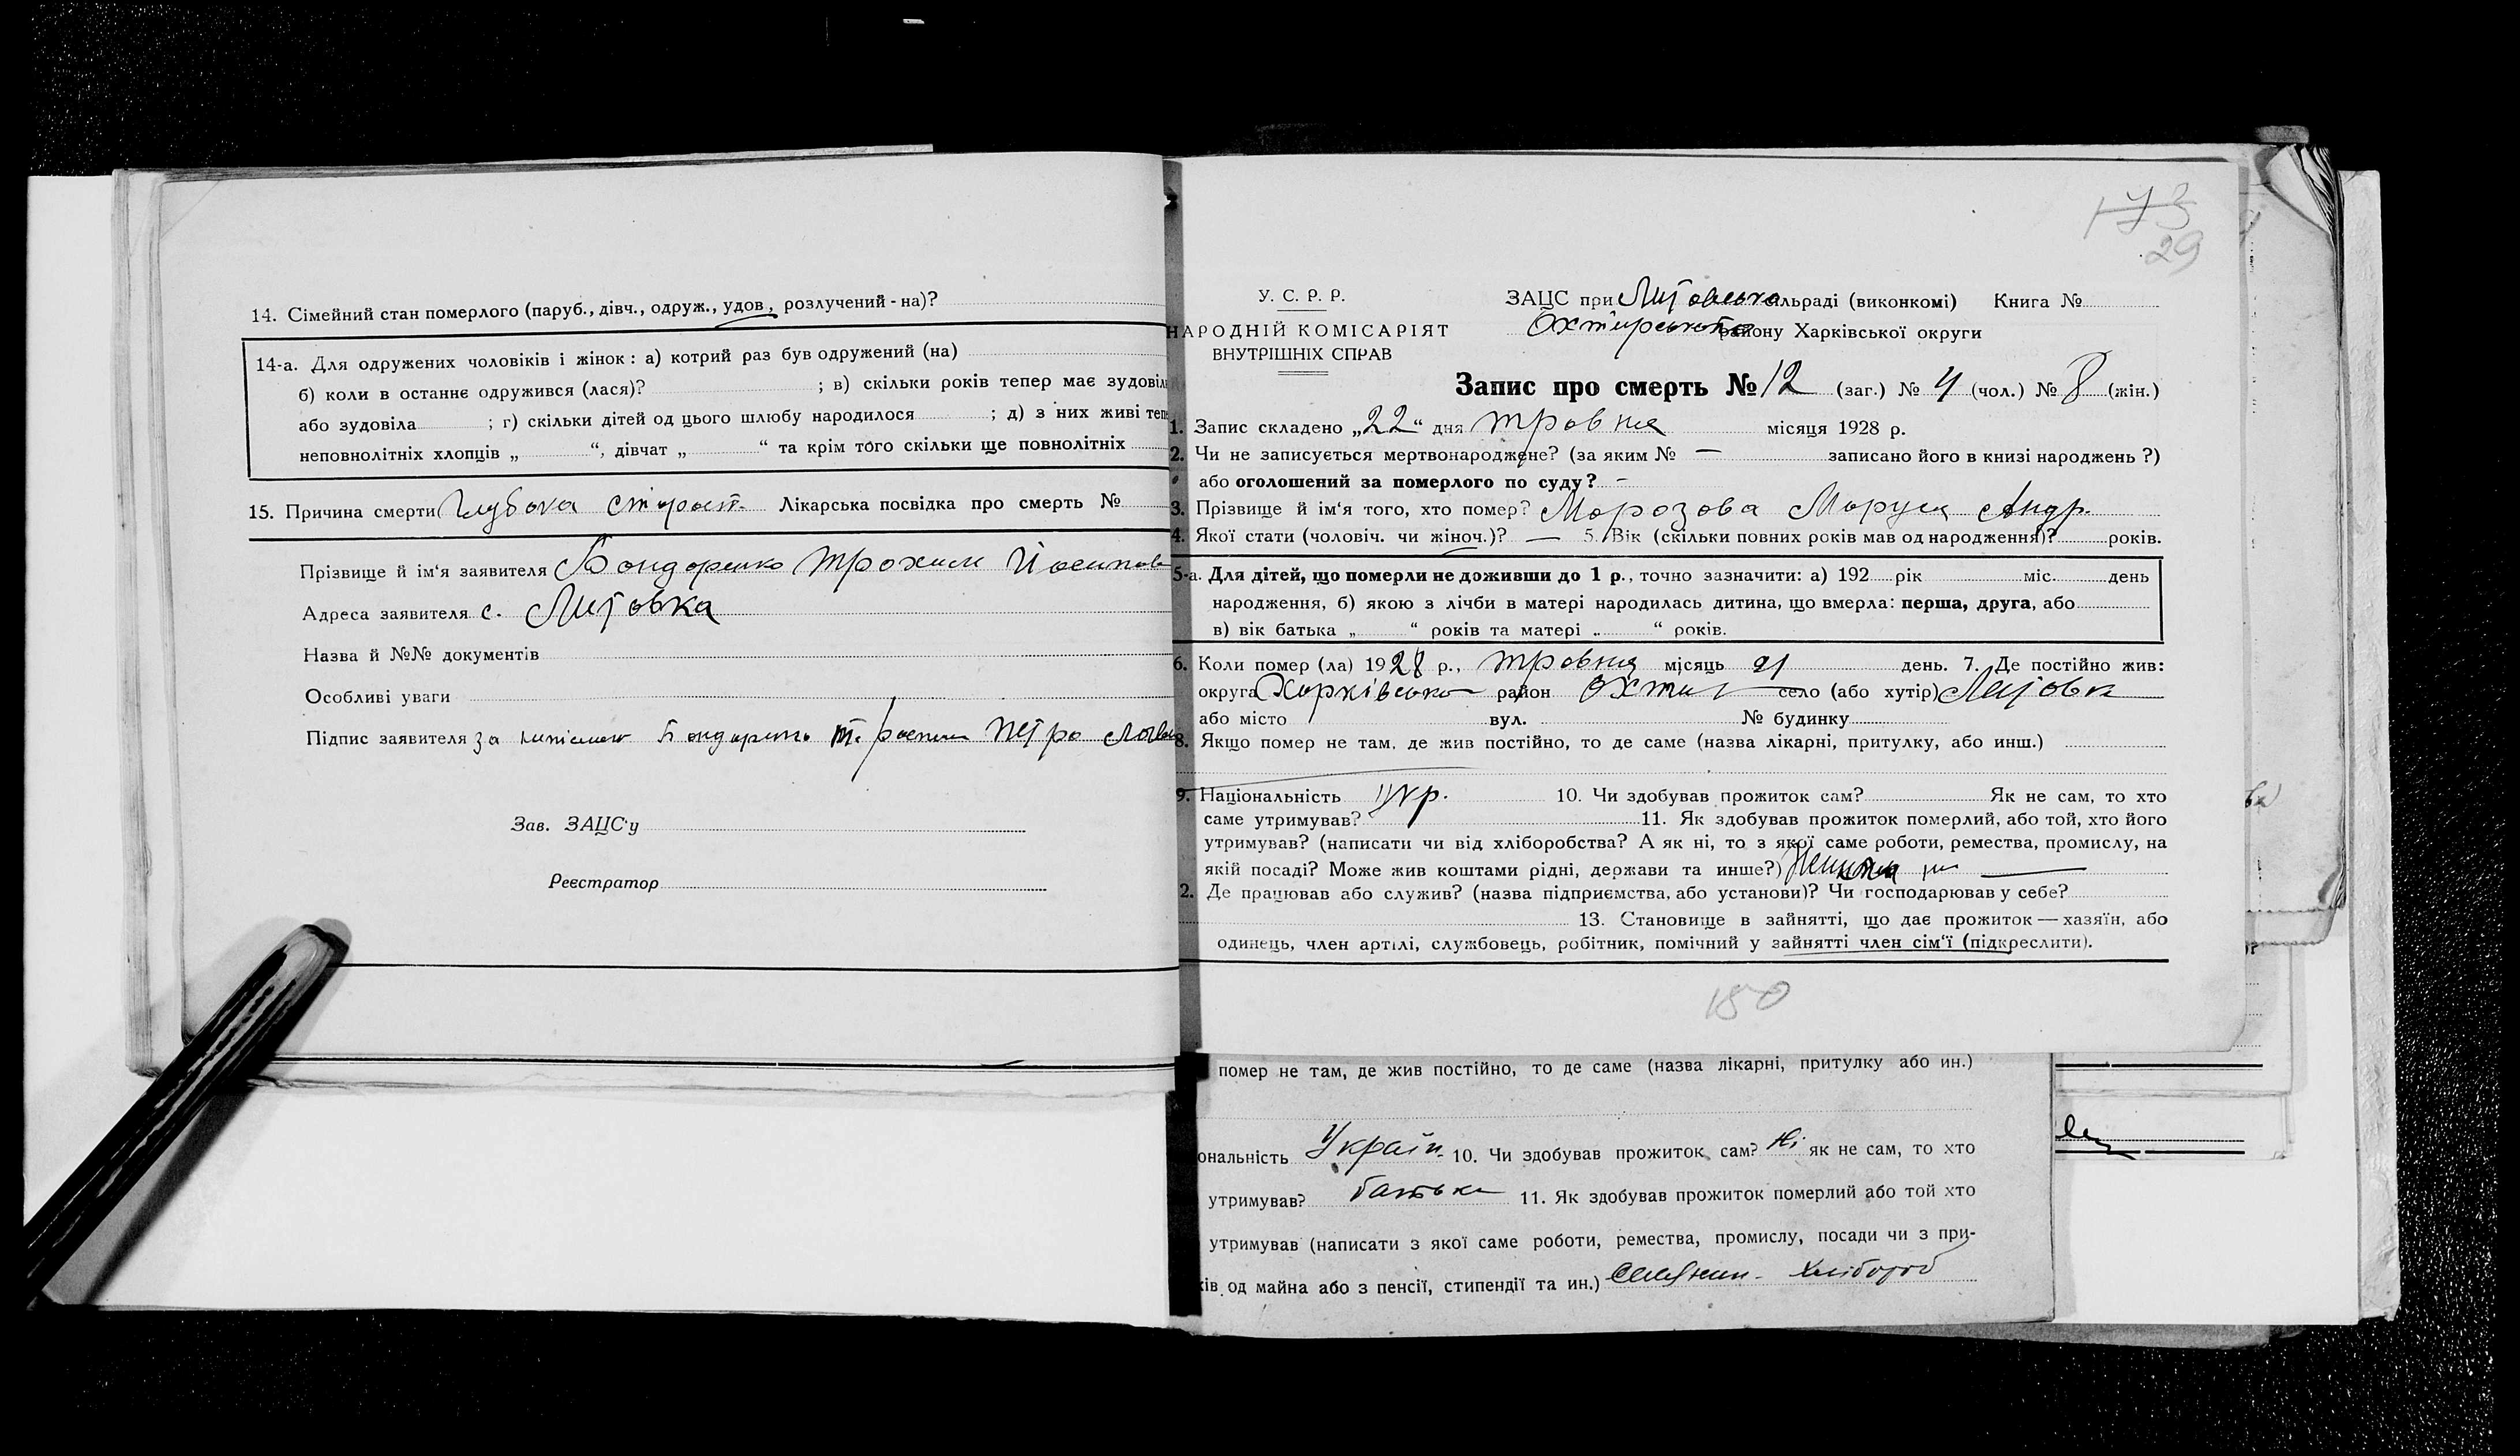 14. Сімейний стан померлого (паруб., дівч., одруж., удов., розлучений-на)?
14-а. Для одружених чоловіків і жінок: а) котрий раз був одружений (на)
б) коли в останнє одружився (лася)? ; в) скільки років тепер має
або зудовіла ; г) скільки дітей од цього шлюбу народилося ; д) з них живі
неповнолітніх хлопців „ “, дівчат „ “ та крім того скільки ще повнолітніх
15. Причина смерти Глубока старост. Лікарська посвідка про смерть №
Прізвище й ім‘я заявителя Бондаренко Трохим Йосипов
Адреса заявителя с. Литовка
Назва й №№ документів
Особливі уваги
Підпис заявителя за Петро
Зав. ЗАЦС‘у
Реєстратор
173
29
У. С. Р. Р.
НАРОДНІЙ КОМІСАРІЯТ
ВНУТРІШНІХ СПРАВ
ЗАЦС при Литовська сільраді (виконкомі) Книга №
Охтирського району Харківської округи
Запис про смерть № 12 (заг.) № 4 (чол.) № 8 (жін.)
1. Запис складено „22“ дня травня місяця 1928 р.
2. Чи не записується мертвонароджене? (за яким № — записано його в книзі народжень?)
або оголошений за померлого по суду? -
3. Прізвище й ім‘я того, хто помер? Морозова Маруся Андр.
4. Якої стати (чоловіч. чи жіноч.)? — 5. Вік (скільки повних років мав од народження)? років.
5-а. Для дітей, що померли не доживши до 1 р., точно зазначити: а) 192 рік міс. день
народження, б) якою з лічби в матері народилась дитина, що вмерла: перша, друга, або
в) вік батька „ “ років та матері „ “ років.
6. Коли помер (ла) 1928 р., травня місяць 21 день. 7. Де постійно жив:
округа Харківсько район Охтир село (або хутір) Литовк
або місто вул. № будинку
8. Якщо помер не там, де жив постійно, то де саме (назва лікарні, притулку, або инш.)
9. Національність Укр. 10. Чи здобував прожиток сам? Як не сам, то хто
саме утримував? 11. Як здобував прожиток померлий, або той, хто його
утримував? (написати чи від хліборобства? А як ні, то з якої саме роботи, ремества, промислу, на
якій посаді? Може жив коштами рідні, держави та инше?)
2. Де працював або служив? (назва підприємства, або установи)? Чи господарював у себе?
13. Становище в зайнятті, що дає прожиток — хазяїн, або
одинець, член артілі, службовець, робітник, помічний у зайнятті член сім‘ї (підкреслити).
180
помер не там, де жив постійно, то де саме (назва лікарні, притулку або ин.)
ональність Україн. 10. Чи здобував прожиток сам? Ні як не сам, то хто
утримував? батько 11. Як здобував прожиток померлий або той хто
утримував (написати з якої саме роботи, ремества, промислу, посади чи з при-
ків од майна або з пенсії, стипендії та ин.) Селянин - хлібороб